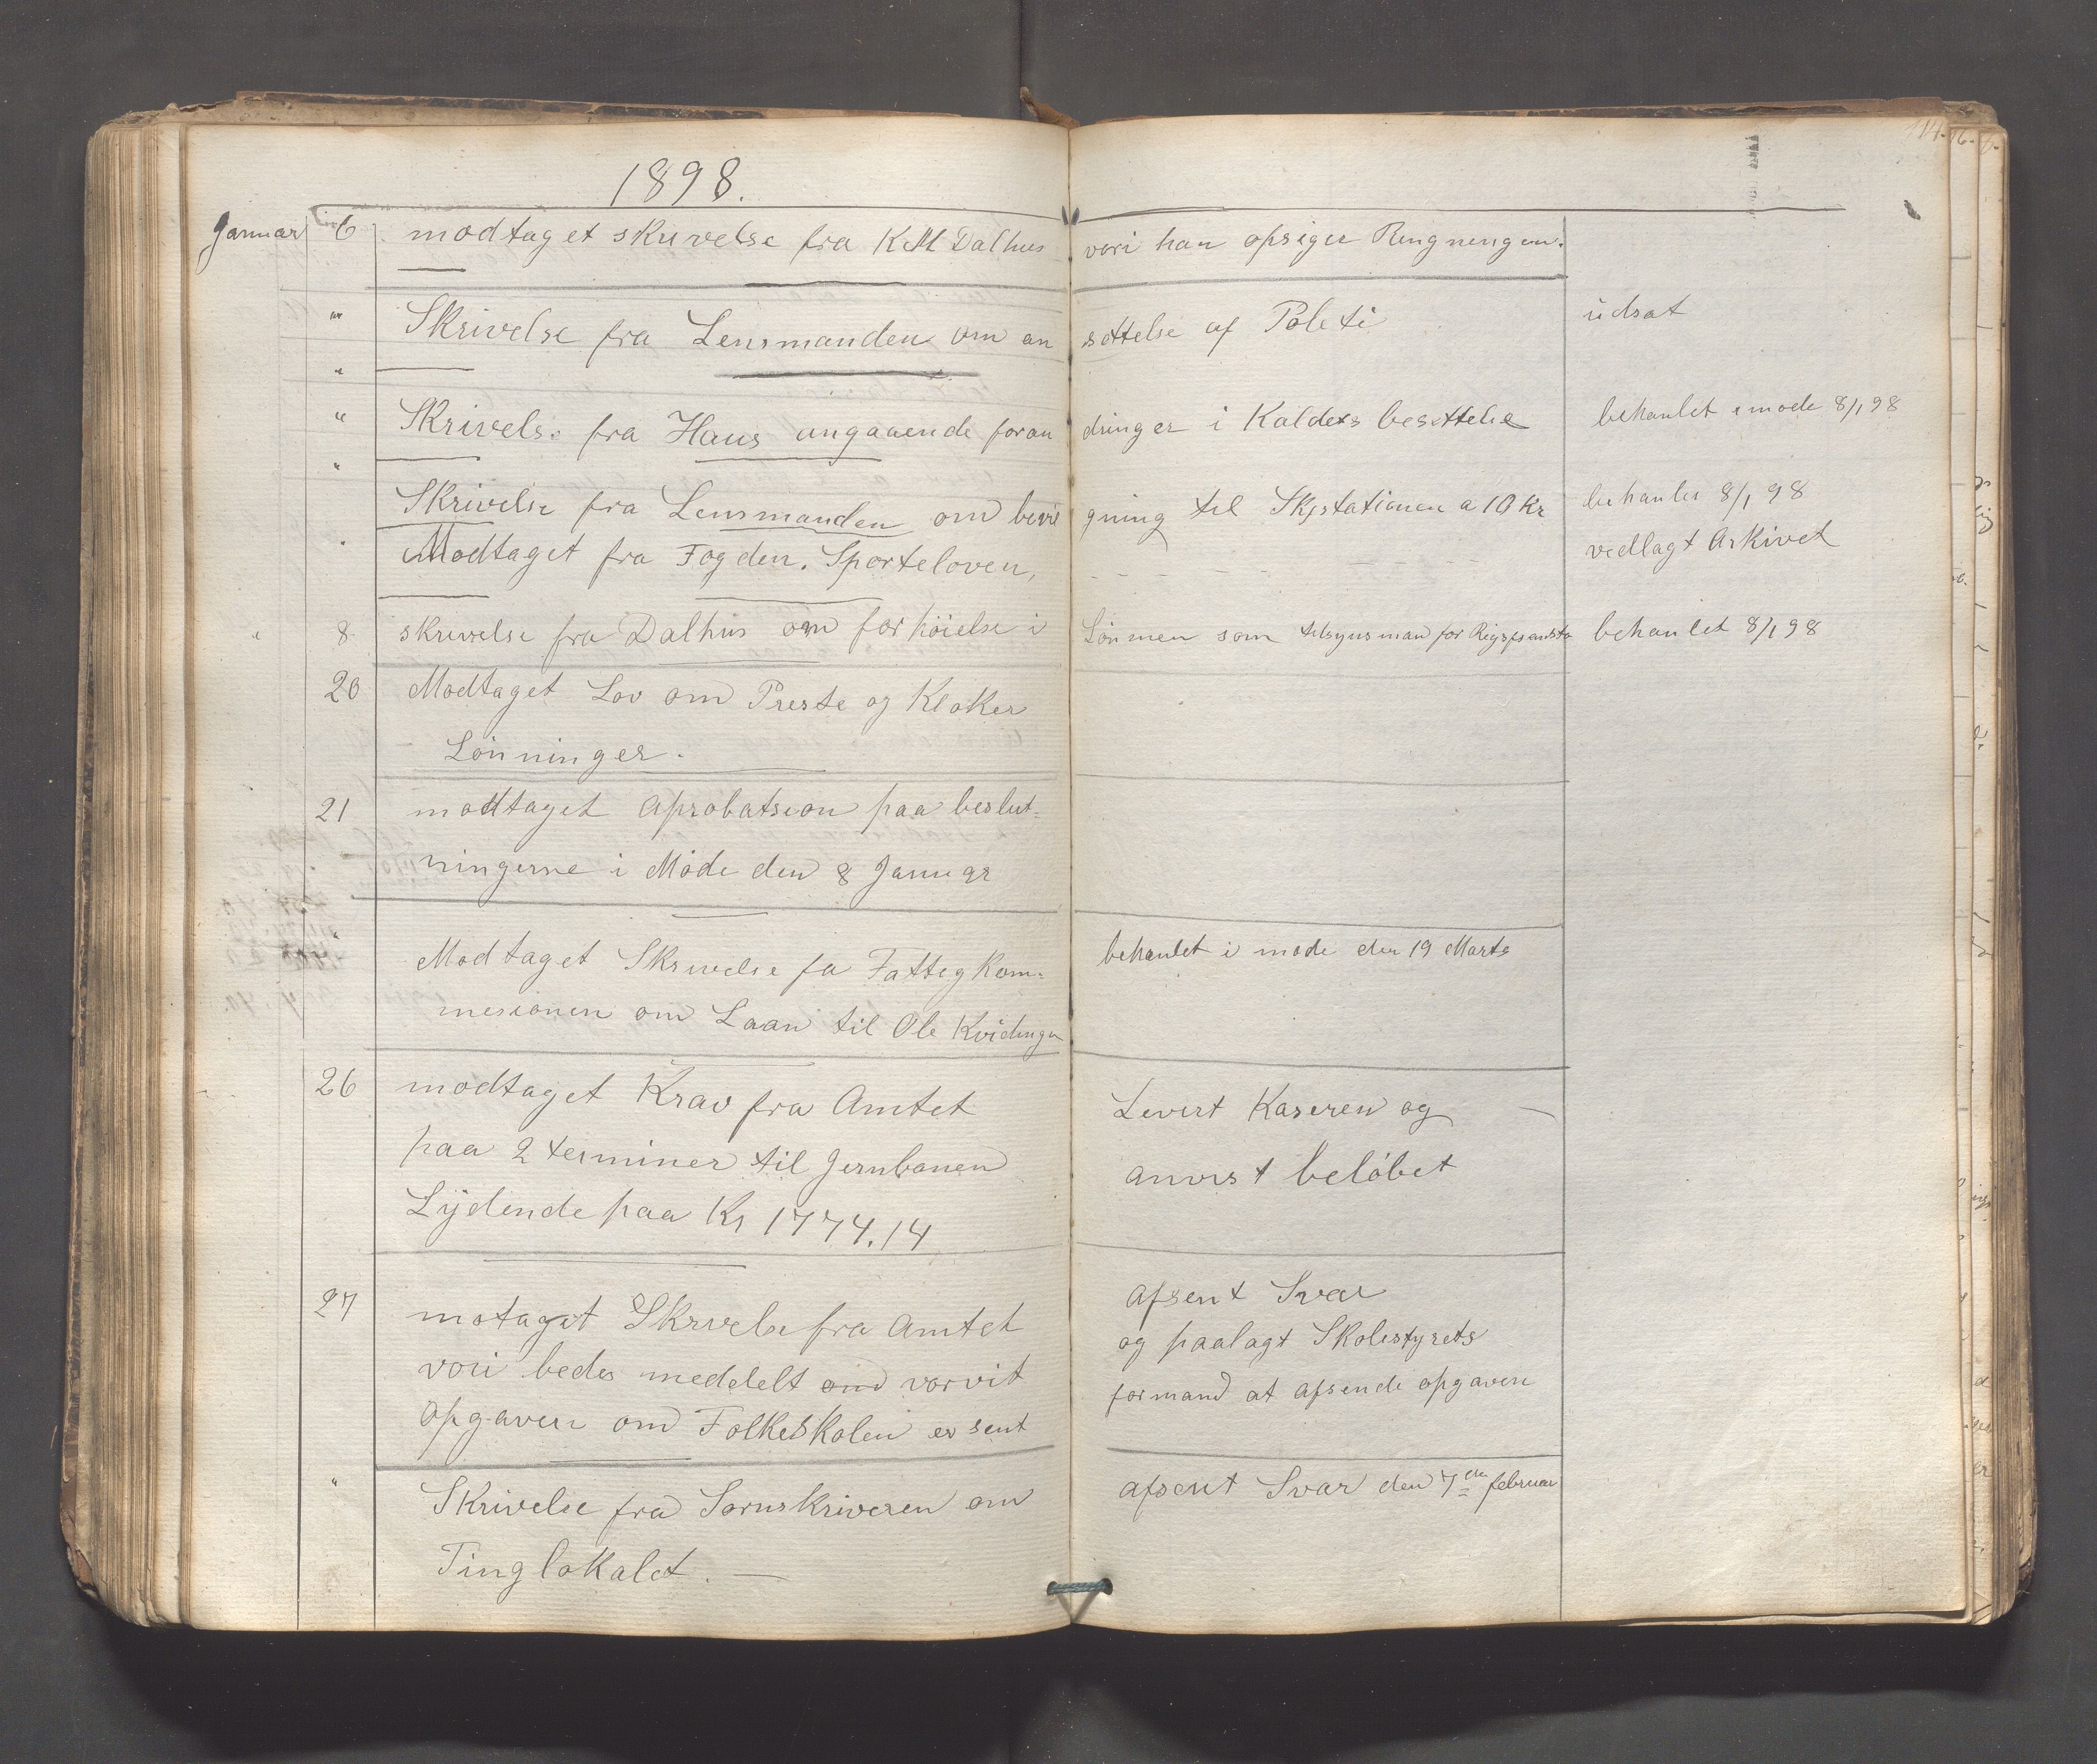 1898.
Januar 6 modtaget skrivelse fra K M Dalhus vori han opsiger Ringningen.
" Skrivelse fra Lensmanden om an sættelse af Poleti udsat
"
" Skrivelse fra Haus angaaende foran dringer i Kaldets besættelse behanlet i mode 8/1 98
"
Skrivelse fra Lensmanden om bevil gning til Skysstationen a 10 Kr behanlet 8/1 98
Modtaget fra Fogden. Sporteloven, - - - - - - - vedlagt Arkivet
" 8 skrivelse fra Dalhus om forhöielse i Lönnen som tilsynsman for behanlet 8/1 98
20 Modtaget Lov om Preste og Kloker
Lönninger.
21 modtaget Aprobatsion paa beslut=
ningerne i Möde den 8 Januar
" Modtaget Skrivelse fa Fattegkom= behanlet i mode den 19 Marts
mesionen om Laan til Ole Kvidingen
26 modtaget Krav fra Amtet Levert Kaseren og
paa 2 terminer til Jernbanen anvist belöbet
Lydende paa Kr 1774.14
27 motaget Skrivelse fra Amtet afsent Svar
vori bedes meddelt om vorvit og paalagt Skolestyrets
opgaven om Folkeskolen er sent formand at afsende opgaven
" Skrivelse fra Sornskriveren om afsent Svar den 7de februar
Tinglokalet. —